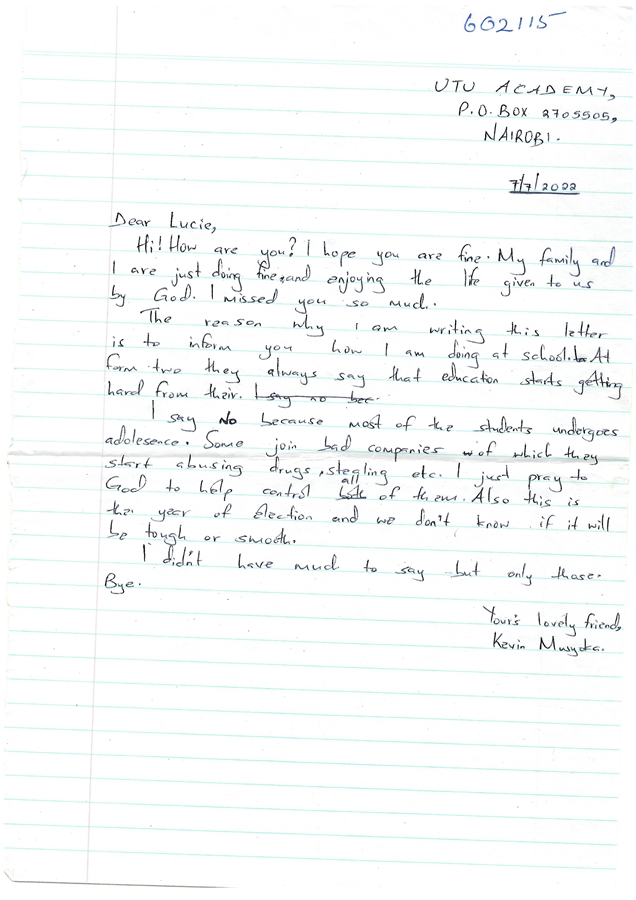 602115
UTU ACADEMY,
P.O. BOX 2705505,
NAIROBI.
7/7/2022
Dear Lucie,
Hi! How are you? I hope you are fine. My family and
I are just doing fine, and enjoying the life given to us
by God. I missed you so much.
The reason why I am writing this letter
is to inform you how I am doing at school. At
form two they always say that education starts getting
hard from their. I say no bec
I say No because most of the students undergoes
adolesence. Some join bad companies of which they
start abusing drugs, stealing etc. I just pray to
God to help control all of them. Also this is
the year of Election and we don't know if it will
be tough or smooth.
I didn't have much to say but only those.
Bye.
Your's lovely friend,
Kevin Musyoka.